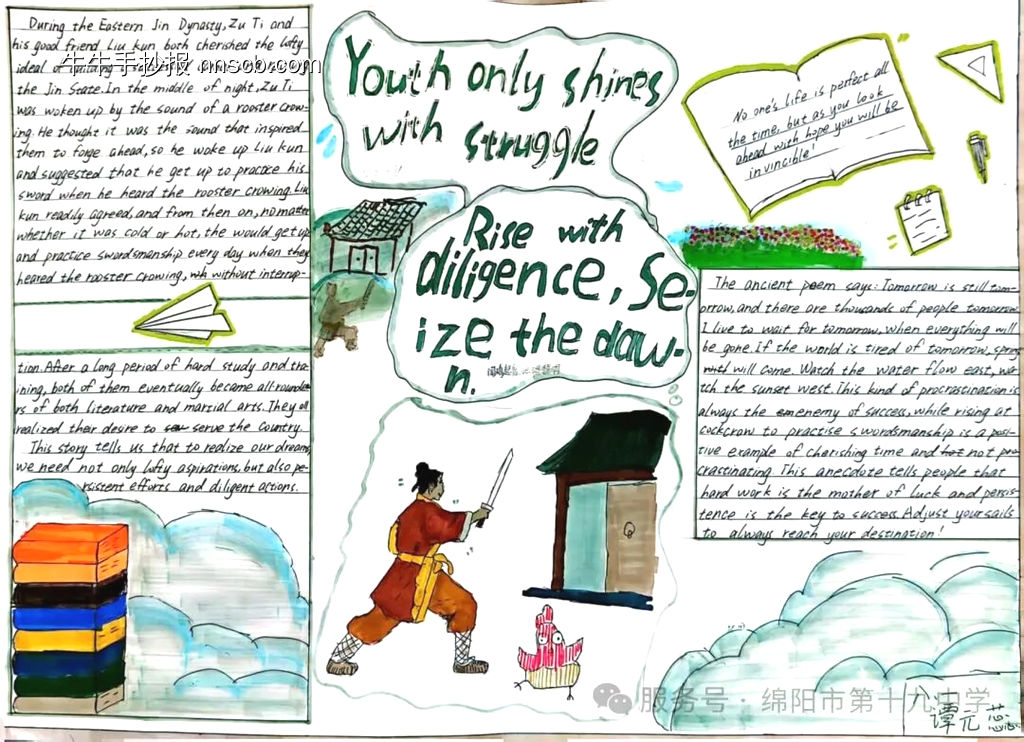 During the Eastern Jin Dynasty, Zu Ti and
his good friend Liu kun both cherished the lofty
ideal of
牛牛手抄报 nnscb.com
the Jin State. In the middle of night, Zu Ti
was woken up by the sound of a rooster crow-
ing. He thought it was the sound that inspired
them to forge ahead, so he woke up Liu kun
and suggested that he get up to practice his
sword when he heard the rooster crowing. Liu
kun readily agreed, and from then on, no matter
whether it was cold or hot, the would get up
and practice swordsmanship every day when they
heard the rooster crowing, without interrup-
tion. After a long period of hard study and tra-
ining, both of them eventually became all-rounde-
rs of both literature and martial arts. They all
realized their desire to serve the country.
This story tells us that to realize our dreams,
we need not only lofty aspirations, but also pe-
rsistent efforts and diligent actions.
Youth only shines
with struggle
Rise with
diligence, Se-
ize the daw-
n.
No one's life is perfect all
the time, but as you look
ahead with hope you will be
invincible!
The ancient poem says: Tomorrow is still tom-
orrow, and there are thousands of people tomorrow.
I live to wait for tomorrow, when everything will
be gone. If the world is tired of tomorrow, spring
will come. Watch the water flow east, wa-
tch the sunset west. This kind of procrastination is
always the enemenemy of success, while rising at
cockcrow to practise swordsmanship is a posi-
tive example of cherishing time and not pro-
crastinating. This anecdoze tells people that
hard work is the mother of luck and persis-
tence is the key to success. Adjust your sails
to always reach your destination!
服务号 · 绵阳市第十九中学
谭元芯